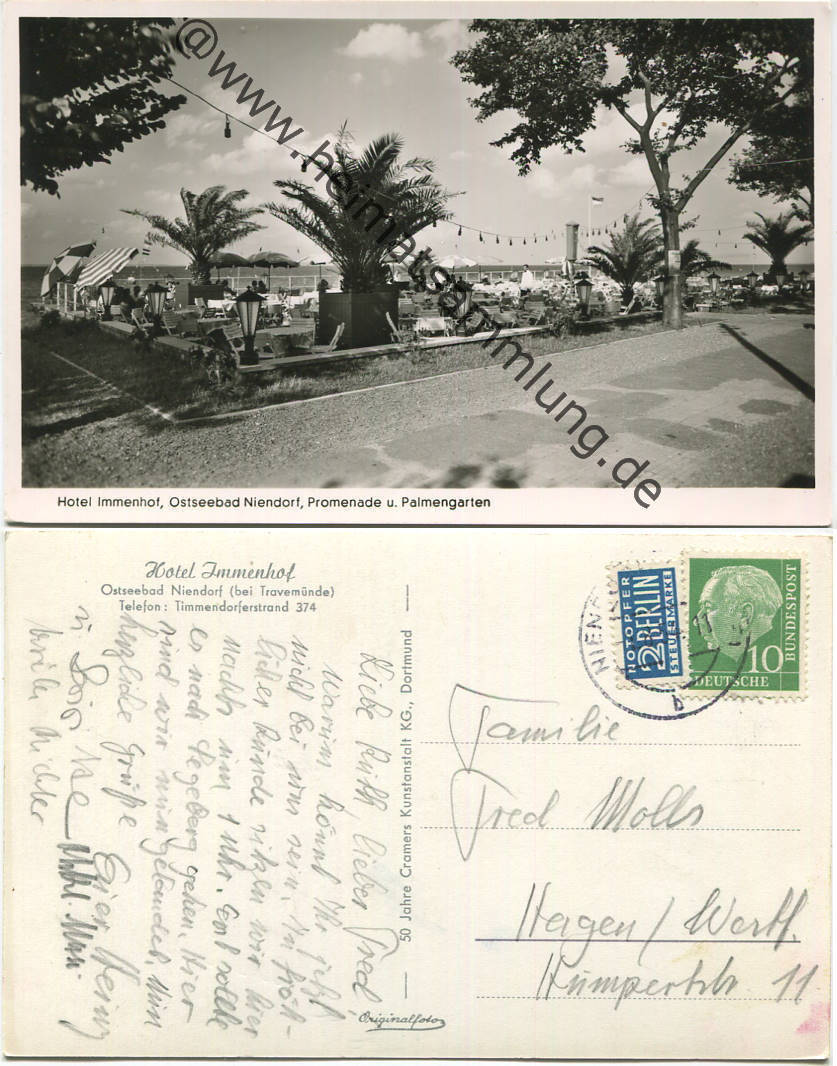 @www.heimatsammlung.de
Hotel Immenhof, Ostseebad Niendorf, Promenade u. Palmengarten
Hotel Immenhof
Ostseebad Niendorf (bei Travemünde)
Telefon: Timmendorferstrand 374
Liebe Ruth, lieber Fred
Warum könnt Ihr jetzt
nicht bei uns sein. In fröh-
licher Runde sitzen wir hier
nachts um 1 Uhr. Erst sollte
es nach Segeberg gehen. Hier
sind wir nun gelandet. Nun
herzliche Grüße
Euer Heinz
u.
50 Jahre Cramers Kunstanstalt KG., Dortmund
Originalfoto
NOTOPFER
2 BERLIN
STEUERMARKE
10
DEUTSCHE
BUNDESPOST
NIEN
b
Familie
Fred Molls
Hagen / Westf.
11